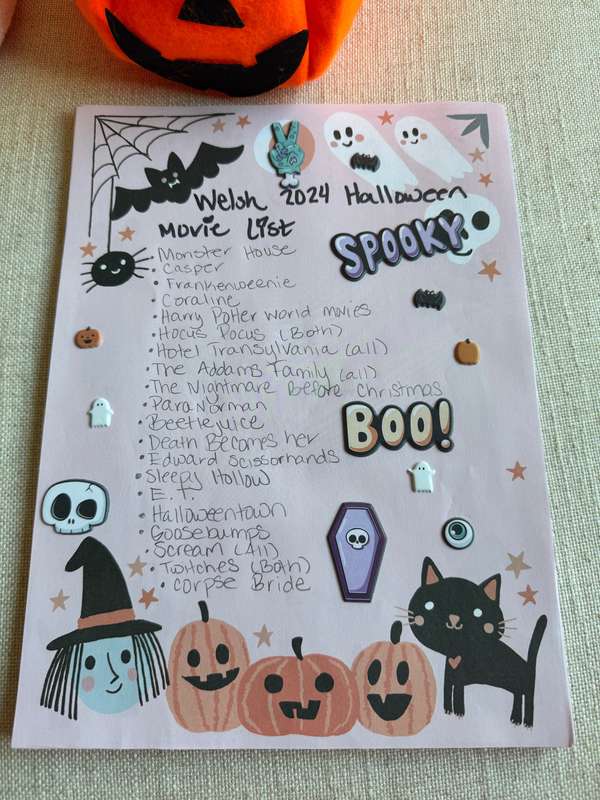 Welsh 2024 Halloween
Movie List
SPOOKY
• Monster House
• Casper
• Frankenweenie
• Coraline
• Harry Potter world movies
• Hocus Pocus (Both)
• Hotel Transylvania (all)
• The Addams Family (all)
• The Nightmare Before Christmas
• ParaNorman
• Beetlejuice
• Death Becomes her
• Edward Scissorhands
• Sleepy Hollow
• E.T.
• Halloweentown
• Goosebumps
• Scream (All)
• Twitches (Both)
• Corpse Bride
BOO!